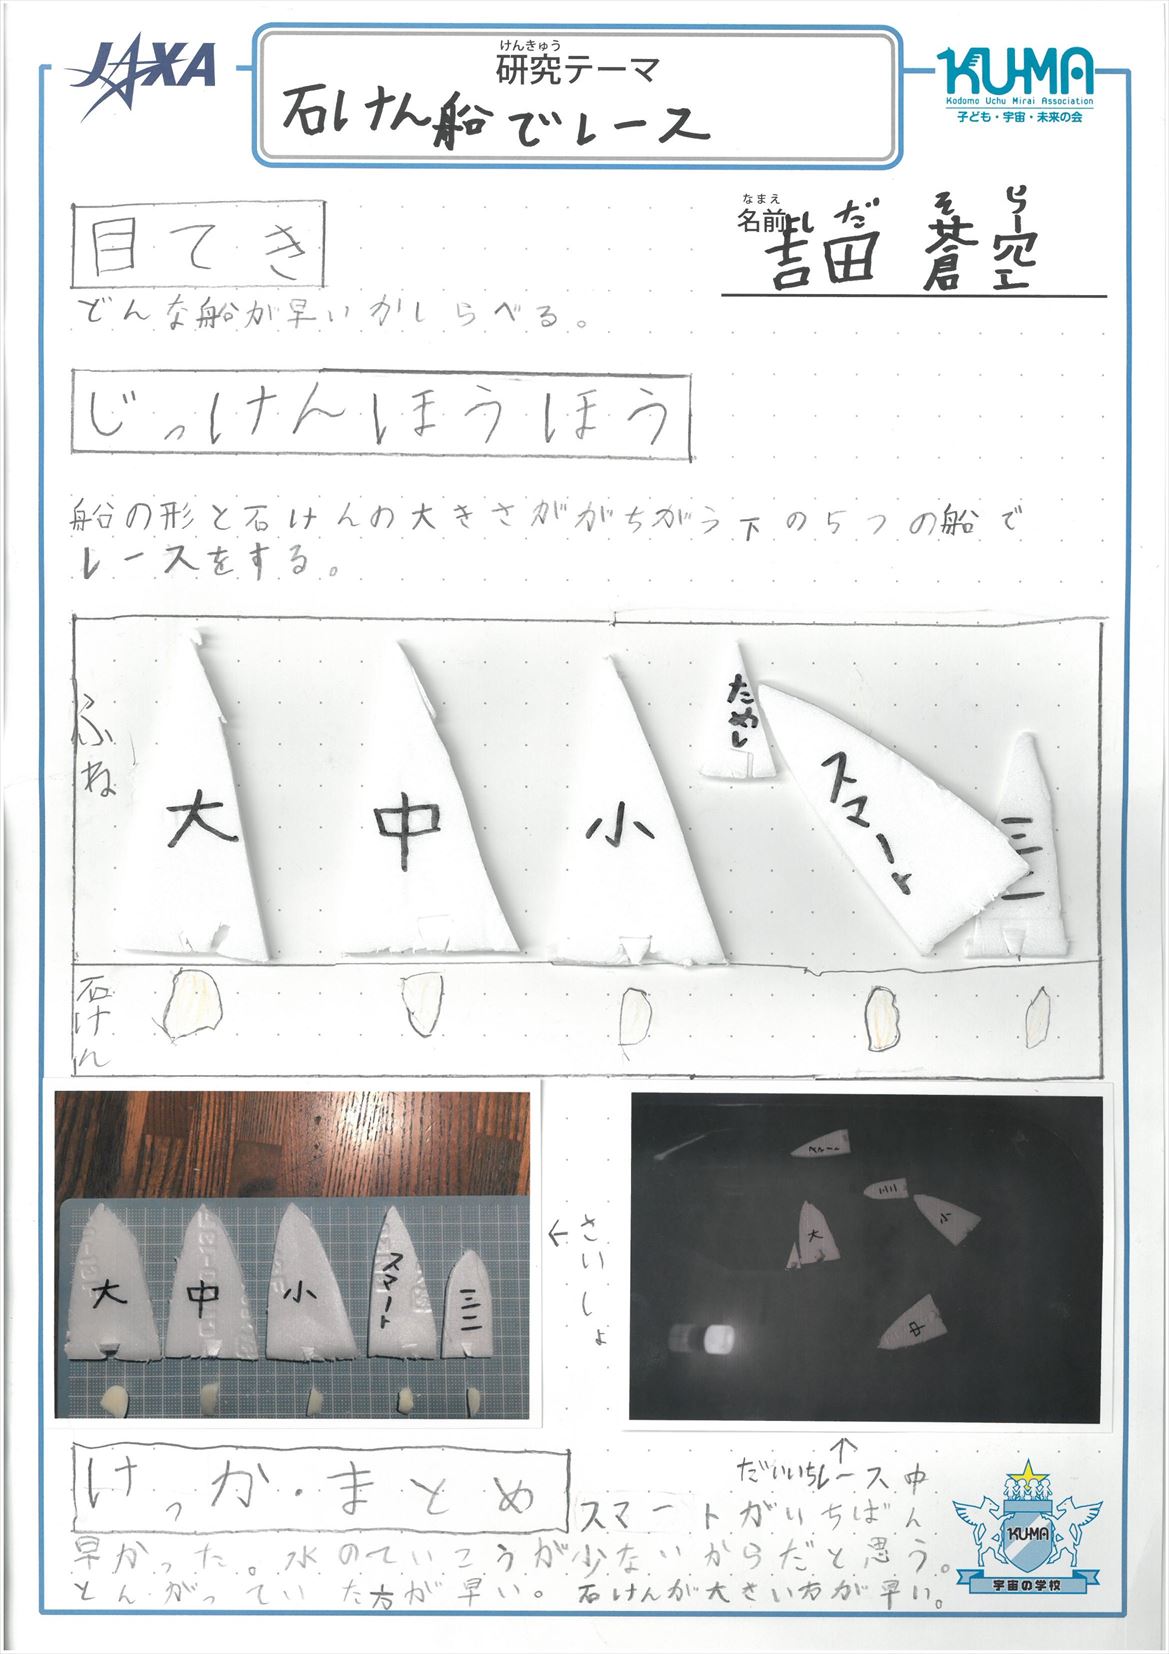 JAXA
けんきゅう
研究テーマ
石けん船でレース
KU-MA
Kodomo Uchu Mirai Association
子ども・宇宙・未来の会
なまえ
名前
よし だ そ ら
吉田 蒼空
目てき
どんな船が早いかしらべる。
じっけんほうほう
船の形と石けんの大きさががちがう下の5つの船で
レースをする。
ふね
大
中
小
ためし
スマート
ミニ
石けん
大
中
小
スマート
ミニ
←さいしょ
スマート
ミニ
小
大
中
↑
だいいちレース中
けっか・まとめ
スマートがいちばん
早かった。水のていこうが少ないからだと思う。
とんがっていた方が早い。石けんが大きい方が早い。
KU-MA
宇宙の学校